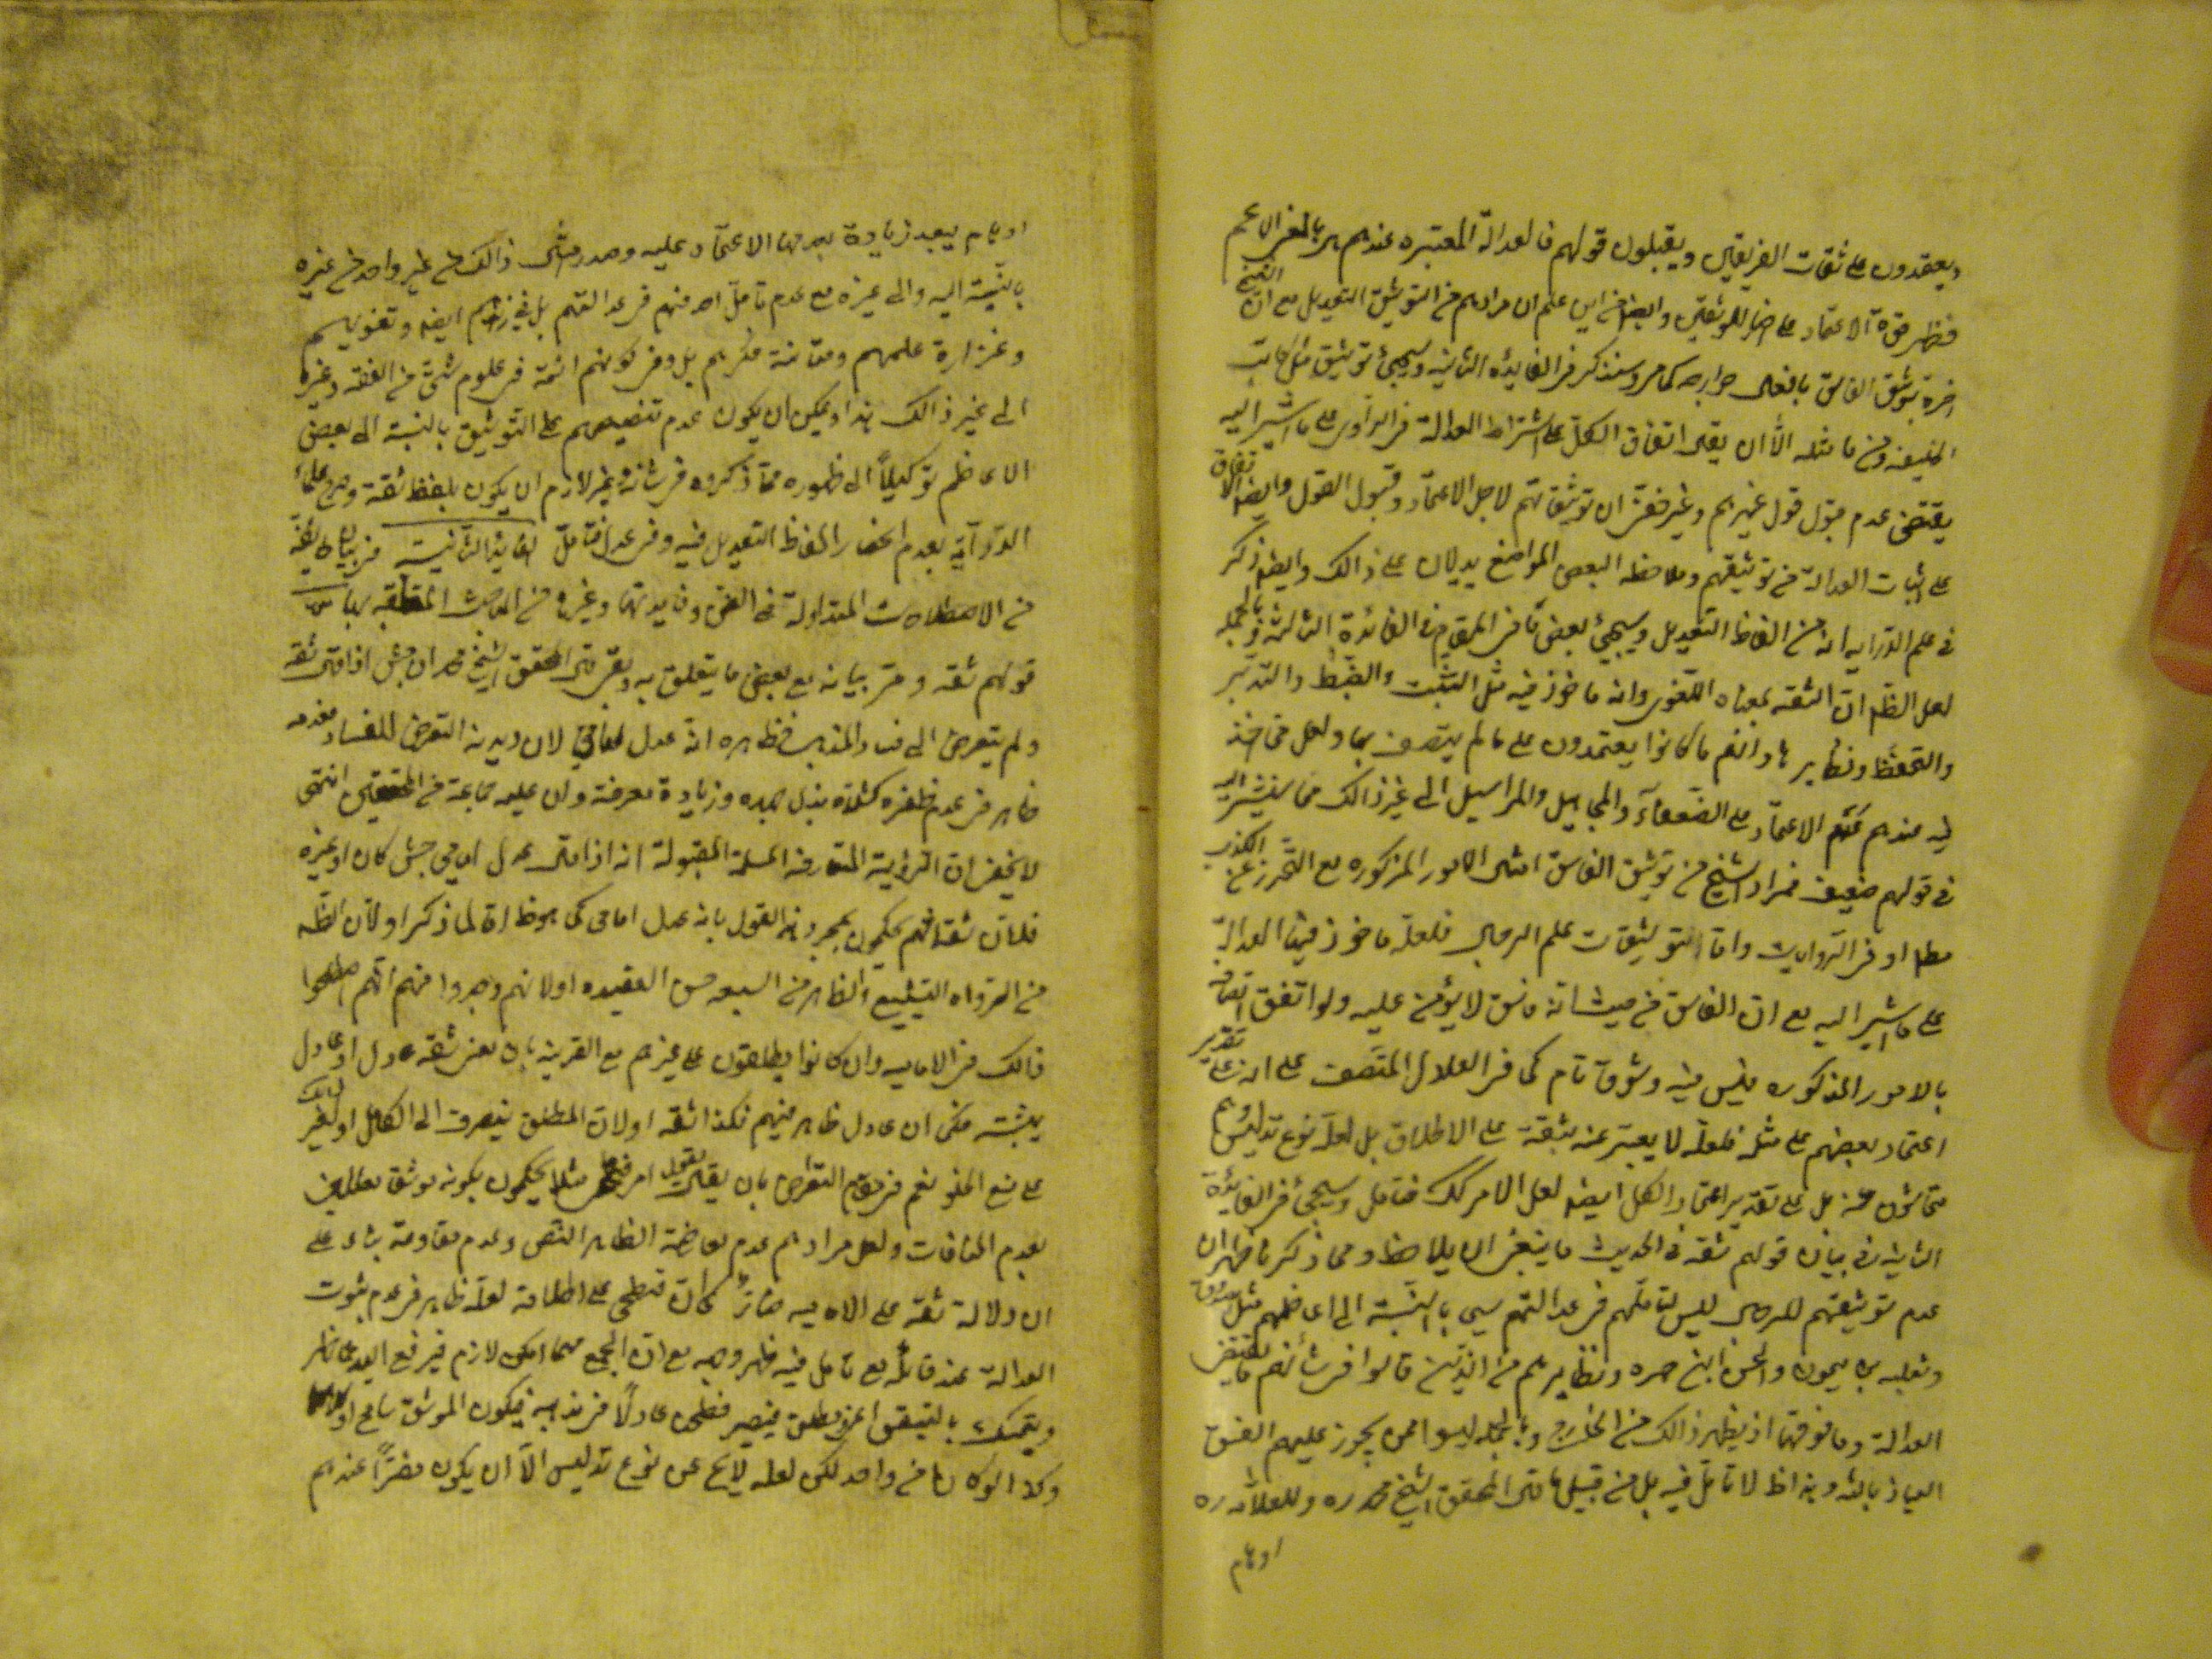 ويعتمدون على ثقات الفريقين ويقبلون قولهم فالعدالة المعتبره عندهم هي بالمعنى الاعم
فظهر قوة الاعتماد على اخبار الموثقين وايضا من اين علم ان مرادهم من التوثيق التعديل مع ان الشيخ
صرح بتوثيق الفاسق بافعال جوارحه كما مر وسنذكر في الفايدة الثانيه وسيجئ توثيق مثل كاتب
الخليفه ومن ماثله الا ان يقال اتفاق الكل على اشتراط العدالة في الراوي على ما اشير اليه
يقتضى عدم قبول قول غيرهم وغير خفي ان توثيقاتهم لاجل الاعتماد وقبول القول وايضا الاتفاق
على اثبات العدالة من توثيقهم وملاحظه البعض المواضع يدلان على ذالك وايضا ذكر
في علم الدرايه انه من الفاظ التعديل وسيجئ بعض ما في المقام في الفائدة الثالثة وبالجمله
لعل الظم ان الثقه بمعناه اللغوى وانه ماخوذ فيه مثل التثبت والضبط والتدبر
والتحفظ ونظايرها وانهم ما كانوا يعتمدون على ما لم يتصف بها ولعل من اخذ
فيه عندهم عدم الاعتماد على الضعفاء والمجاهيل والمراسيل الى غير ذالك مما سنشير اليه
في قولهم ضعيف فمراد الشيخ من توثيق الفاسق امثال الامور المذكوره مع التحرز عن الكذب
مطم او في الروايات واما توثيقات علم الرجال فلعله ماخوذ فيها العدالة
على ما اشير اليه مع ان الفاسق من حيث انه فاسق لا يؤمن عليه ولو اتفق اتصافه
بالامور المذكوره فليس فيه وثوق تام كما في العادل المتصف على انه على تقدير
اعتماد بعضهم على مثله فلعله لا يعبر عنه بثقة على الاطلاق بل لعله نوع تدليس وهم
متحاشون عنه بل على تقدير اعتماد الكل ايضا لعل الامر كك فتامل وسيجئ في الفايدة
الثانية في بيان قولهم ثقة في الحديث ما ينبغي ان يلاحظ ومما ذكرنا ظهر ان
عدم توثيقهم للرجال ليس لتاملهم في عدالتهم سيما بالنسبة الى اعاظمهم مثل صدوق
وثعلبه بن ميمون والحسن ابن حمزه ونظايرهم من الذين قالوا في شأنهم ما يقتضي
العدالة وما فوقها اذ يظهر ذالك من الخارج وبالجمله ليسوا ممن يجوز عليهم الفسق
العياذ بالله وهذا ظ لا تامل فيه بل من قبيل ما قال المحقق الشيخ محمد ره وللعلامه ره
اوهام
اوهام يبعد زيادة بعد معها الاعتماد عليه وصدور مثل ذالك من غير واحد من غيره
بالنسبة اليه والى غيره مع عدم تامل احد منهم في عدالتهم بل في زهدهم ايضا وتقويهم
وغزارة علمهم ومتانة فكرهم بل وفي كونهم ائمة في علوم شتى من الفقه وغيره
الى غير ذالك هذا ويمكن ان يكون عدم تنصيصهم على التوثيق بالنسبة الى بعض
الاعاظم توكيلاً الى ظهوره مما ذكروه في شانه غير لازم ان يكون بلفظ ثقة وصرح علماء
الدراية بعدم انحصار الفاظ التعديل فيه وفي عدل فتامل الفايدة الثانية في بيان طايفة
من الاصطلاحات المتداولة في الفن وفايدتها وغيرها من المباحث المتعلقه بها منها
قولهم ثقه ومر بيانه مع بعض ما يتعلق به وبقى قال المحقق الشيخ محمد ان جش اذا قال ثقه
ولم يتعرض الى فساد المذهب فظاهره انه عدل امامي لان ديدنه التعرض للفساد فعدمه
ظاهر في عدم ظفره لشدة بذل جهده وزيادة معرفته وان عليه جماعة من المحققين انتهى
لا يخفى ان الروية المتعارفه المسلمة المقبولة انه اذا قال عدل امامي جش كان او غيره
فلان ثقة انهم يحكمون بمجرد هذا القول بانه عدل امامي كما هو ظ اما لما ذكر او لان الظم
من الرواه التشيع والظاهر من الشيعه حسن العقيده او لانهم وجدوا منهم انهم اصطلحوا
ذالك في الاماميه وان كانوا يطلقون على غيرهم مع القرينه بان معنى ثقه عدل او عادل
ثبت فكما ان عادل ظاهر فيهم فكذا ثقه او لان المطلق ينصرف الى الكامل او لغير ذالك
على منع الخلو نعم في مقام التعارض بان يقول امر فطحي مثلا يحكمون بكونه موثقا معللين
بعدم المنافات ولعل مرادهم عدم معارضة الظاهر النص وعدم مقاومته بناء على
ان دلالة ثقة على الاماميه ظاهر كما ان فطحي على اطلاقه لعله ظاهر في عدم ثبوت
العدالة عند قائله مع تامل فيه ظهر وجهه مع ان الجمع مهما امكن لازم فيرفع اليد عن ظاهر
ويتمسك بالمتيقن اعنى مطلق فيصير فطحي عادلاً في مذهبه فيكون الموثق تسامح او
وكذا لو كانا من واحد لكن لعله لا يخ عن نوع تدليس الا ان يكون مضراً عندهم